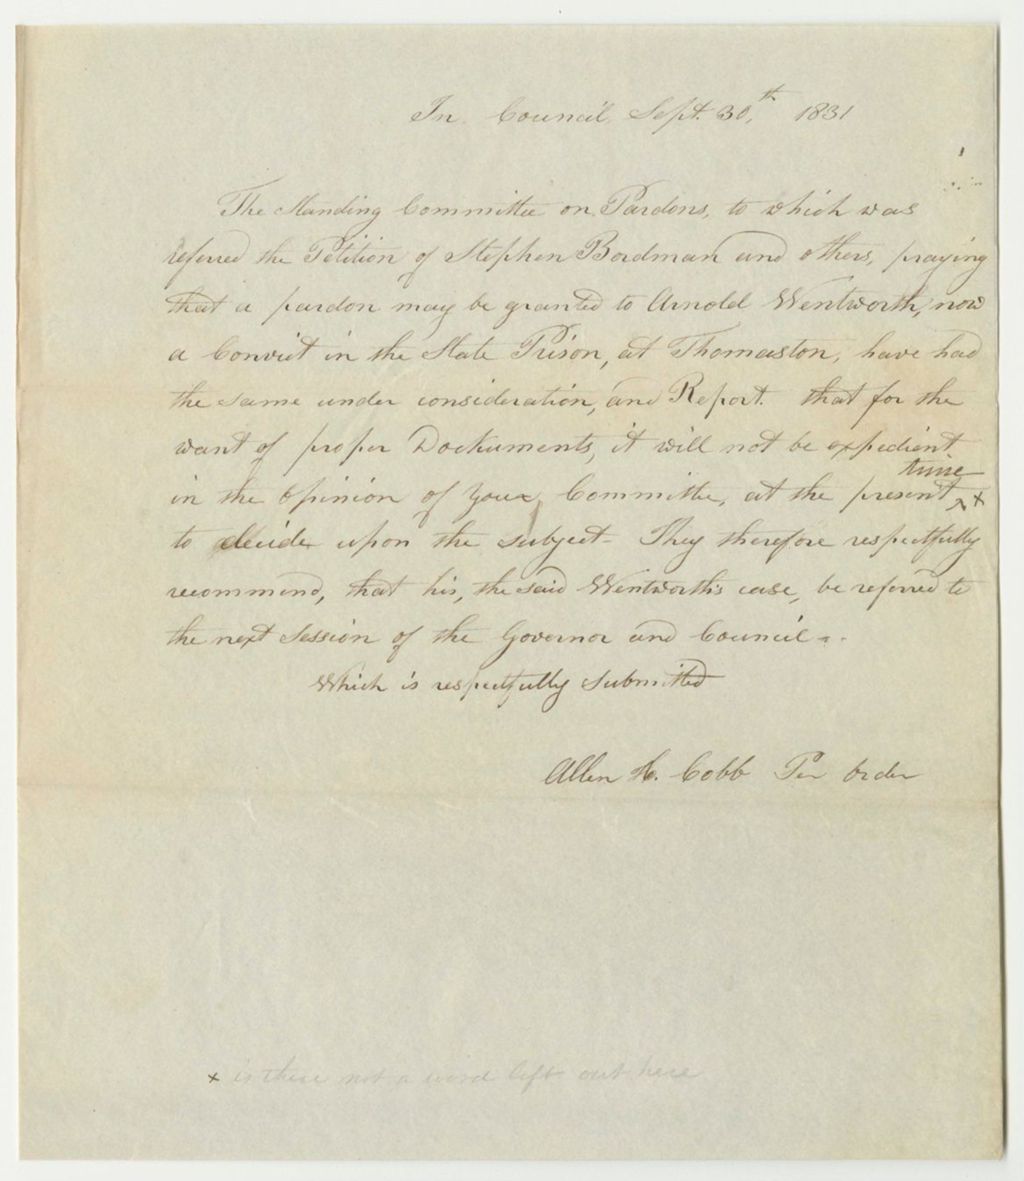 In Council, Sept. 30,th 1831
The Standing Committee on Pardons, to which was
referred the Petition of Stephen Bordman and others, praying
that a pardon may be granted to Arnold Wentworth, now
a Convict in the State Prison, at Thomaston, have had
the same under consideration, and Report. that for the
want of proper Dockuments, it will not be expedient
time
in the Opinion of Your Committee, at the present ^ x
to decide upon the subject - They therefore respectfully
recommend, that his, the said Wentworth's case, be referred to
the next Session of the Governor and Council -.
Which is respectfully Submitted
Allen H. Cobb Per Order
x is there not a word left out here